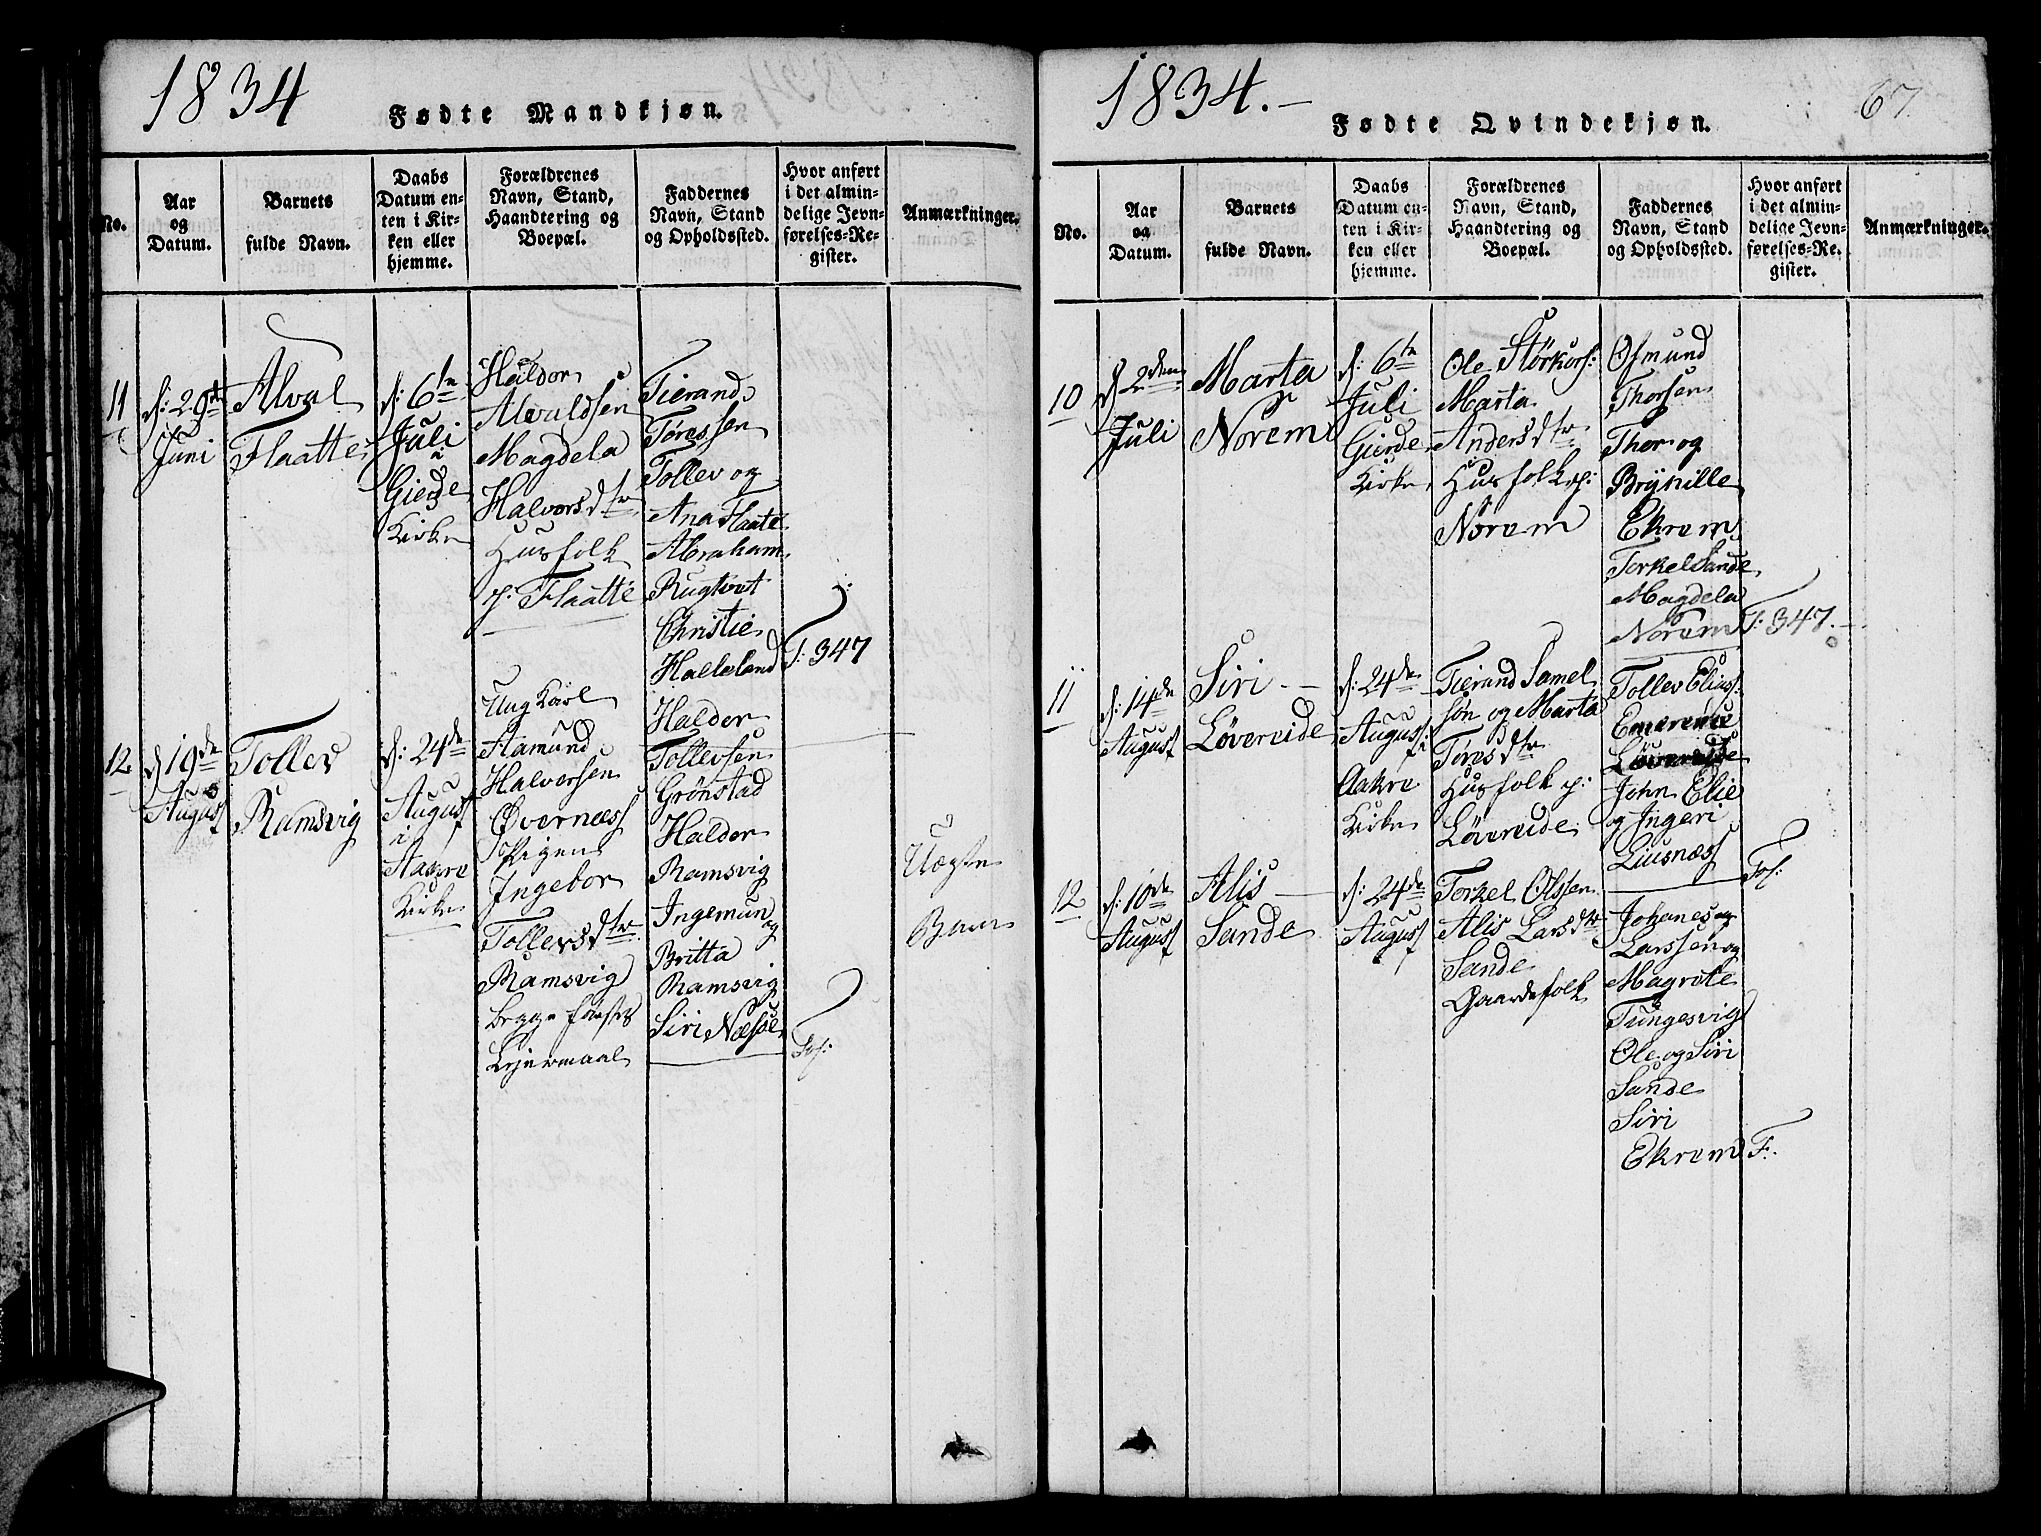 1834
Fødte Mandkjøn.
No.
Aar
og
Datum.
Barnets
fulde Navn.
Daabs
Datum en-
ten i Kir-
ken eller
hjemme.
Forældrenes
Navn, Stand,
Haandtering og
Boepæl.
Faddernes
Navn, Stand
og Opholdssted.
Hvor anført
i det almin-
delige Jevn-
førelses-Re-
gister.
Anmærkninger.
11
d: 29de
Juni
Alval
Flaatte
d: 6te
Juli
i
Gierde
Kirke
Haldor
Alvaldsen
Magdela
Halvorsdtr
Husfolk
p: Flaatte
Tierand
Tøressen
Tollev og
Ana Flaate
Abraham
Rugtvet
Christie
Halleland
T: 347
12
d 19de
August
Tollev
Ramsvig
d: 24de
August
i
Aakre
Kirke
Ung Karl
Aamund
Halversen
Øvernæss
Pigen
Ingebor
Tollevsdtr
Ramsvig
begge første
Lejermaal
Halder
Tollevsen
Grønstad
Halder
Ramsvig
Ingemun
og
Britta
Ramsvig
Siri Næsse
Uægte
Barn
1834.-
67.
Fødte Qvindekjøn.
No.
Aar
og
Datum.
Barnets
fulde Navn.
Daabs
Datum en-
ten i Kir-
ken eller
hjemme.
Forældrenes
Navn, Stand,
Haandtering og
Boepæl.
Faddernes
Navn, Stand
og Opholdssted.
Hvor anført
i det almin-
delige Jevn-
førelses-Re-
gister.
Anmærkninger.
10
d 2den
Juli
Marta
Norem
d: 6te
Juli
Gierde
Kirke
Ole Størkors:
Marta
Andersdtr
Husfolk p:
Norem
Osmund
Thorsen
Thor og
Brynille
Ekrem
Torkel Sande
Magdela
Norem
T: 347.
11
d: 14de
August
Siri
Løvereide
d: 24de
August
i
Aakre
Kirke
Tierand Samel
søn og Marta
Tøresdtr
Husfolk p:
Løvereide
Tollev Elias:
Løvereide
John Elie
og Ingeri
Liusnæss
12
d: 10de
August
Alis
Sande
d: 24de
August
Torkel Olssen
Alis Larsdtr
Sande
Gaardefolk
Johanes og
Larssen og
Magrete
Tungesvig
Ole og Siri
Sande
Siri
Ekrem
F: